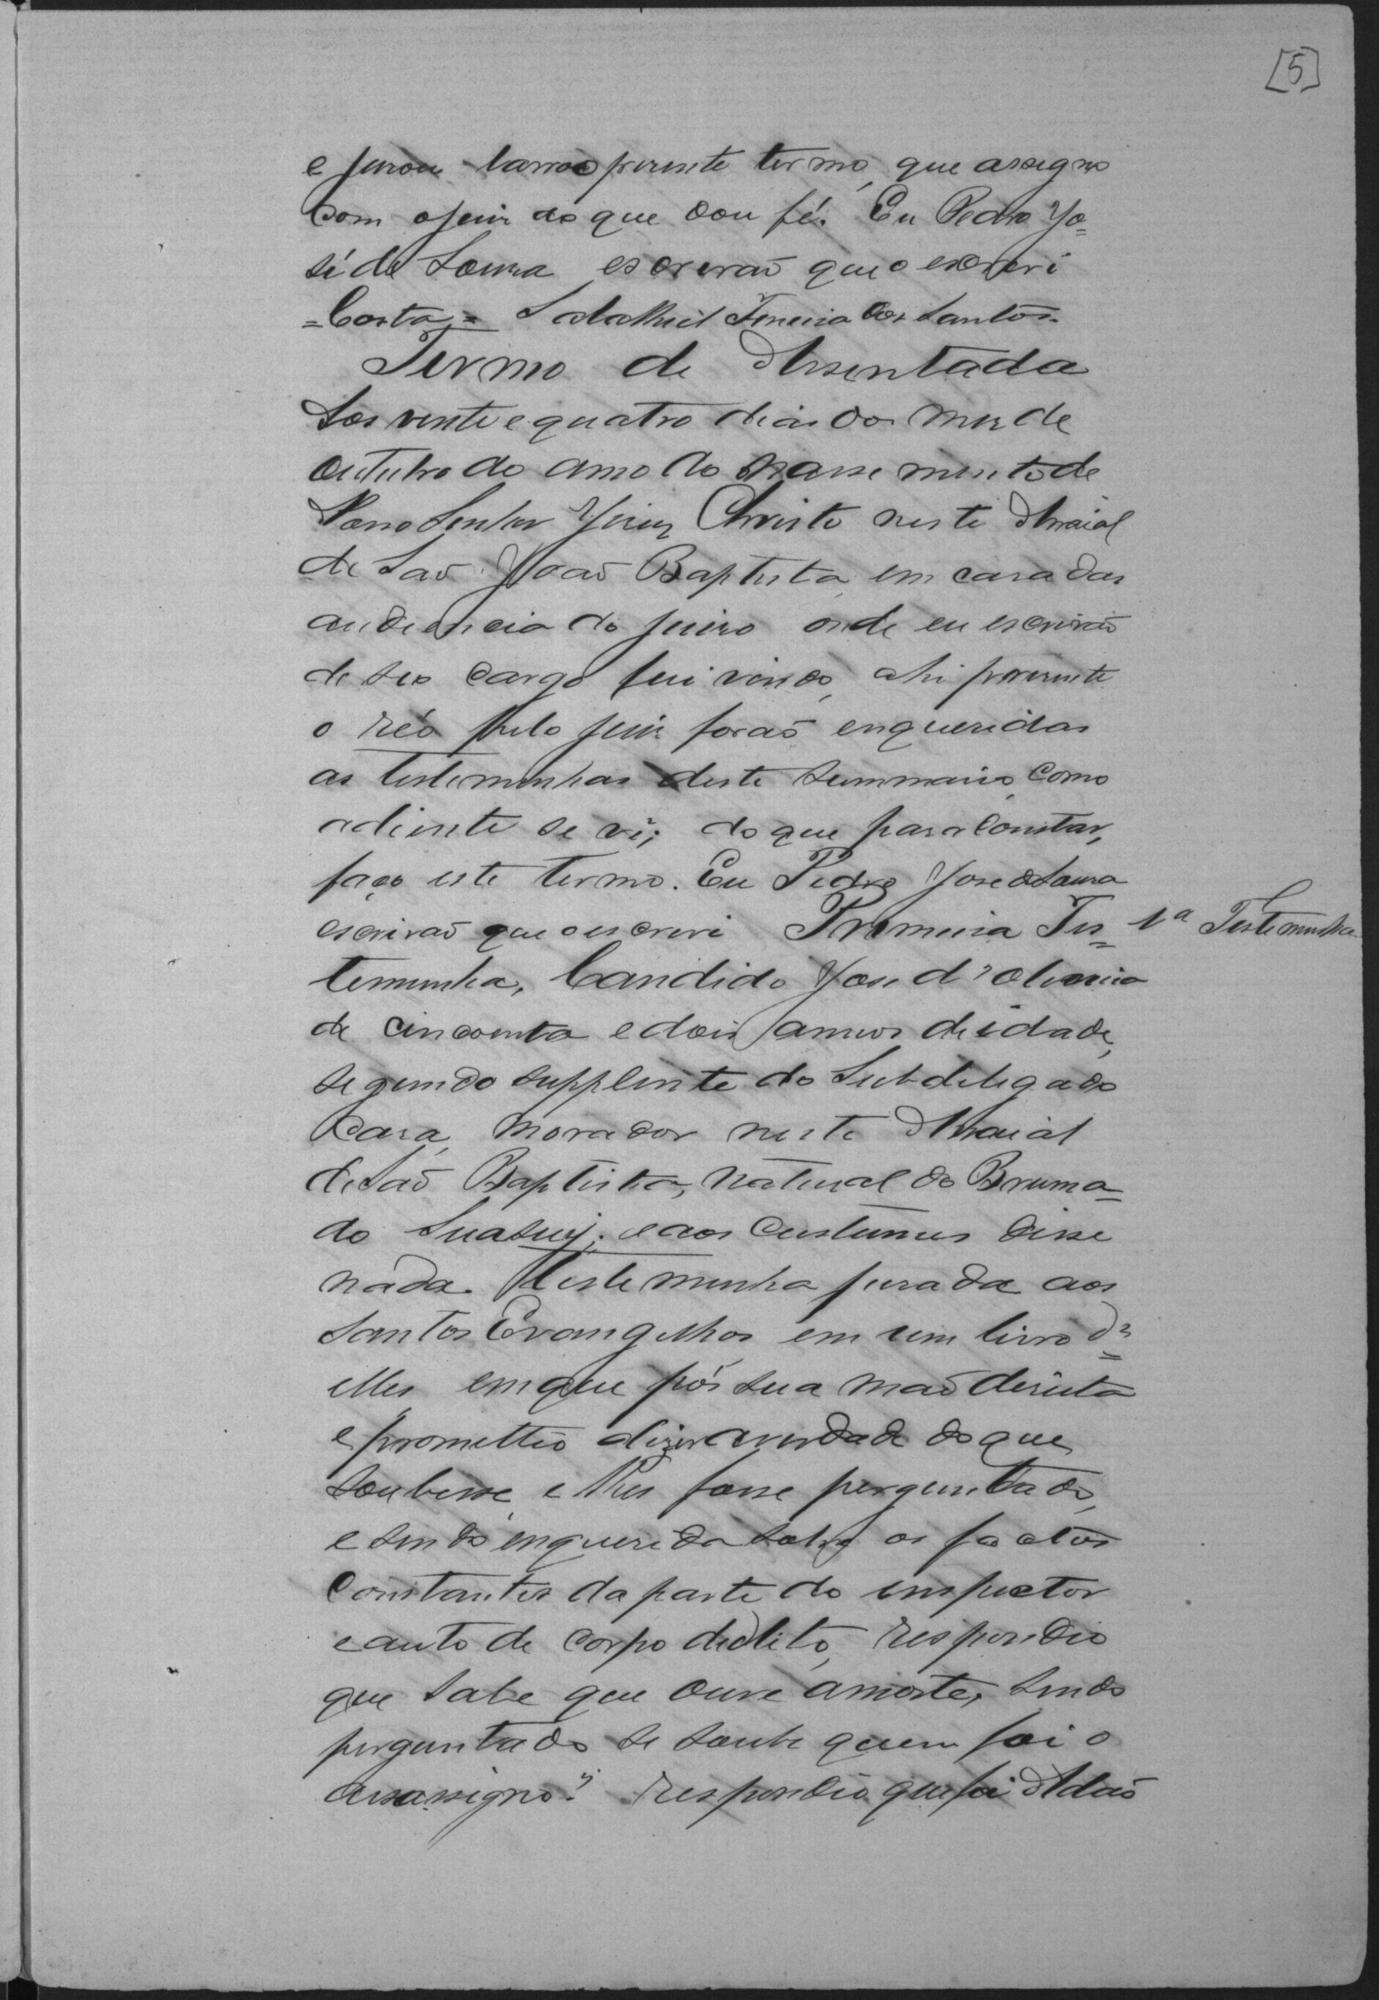 [5]
e jurou lavro o presente termo, que assigno
com o Juiz do que dou fé. Eu Pedro Jo=
sé de Souza escrivaõ que o escrevi
=Costa,= Ferreira dos Santos.
Termo de Assentada
Aos vinte e quatro dias do mez de
outubro do anno do nassimento de
Nosso Senhor Jesuz Christo neste Arraial
de Saõ Joaõ Baptista, em casa das
audiencia do Juizo onde eu escrivaõ
de seo cargo fui vindo, ahi prezente
o réo pelo Juiz foraõ enqueridas
as testemunhas deste summario, como
adiente se vê; do que para Constar,
faço este termo. Eu Pedro Jose de Souza
escrivaõ que o escrevi Primeira Tes=
1ª Testemunha
temunha, Candido Jose d'oliveira
de cincoenta e dois annos de idade,
segundo supplente do Subdelegado
Casa, morador neste Arraial
de Saõ Baptista, natural do Bruma=
do Suasuy; e aos custumes disse
nada. Testemunha jurada aos
Santos Evangelhos em um livro d'=
elles em que pôs sua maõ direita
e prometteo dizer a verdade do que
soubesse, e lhes fosse perguntado,
e sendo enquerida sobre os factos
Constantes da parte do inspector
e auto de corpo dedlito, respondeo
que sabe que ouve a morte, sendo
perguntado se soube quem foi o
assassigno? respondeo que foi Adaõ